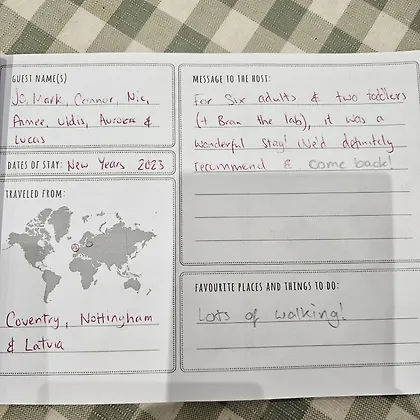 GUEST NAME(S)
Jo, Mark, Connor, Nic,
Aimee, Vidis, Aurora &
Lucas
DATES OF STAY: New Years 2023
TRAVELED FROM:
Coventry, Nottingham
& Latvia
MESSAGE TO THE HOST:
For Six adults & two toddlers
(+ Bran the lab), it was a
wonderful stay! We'd definitely
recommend & come back!
FAVOURITE PLACES AND THINGS TO DO:
Lots of walking!